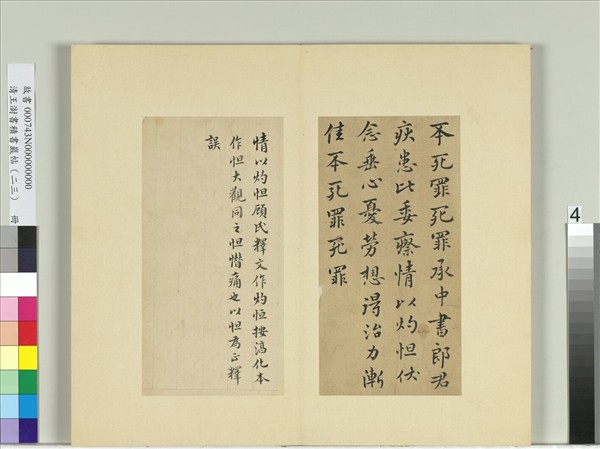 不死罪死罪承中書郎君
疾患比委瘵情以灼怛伏
念垂心憂勞想得治力漸
佳不死罪死罪
情以灼怛顧氏釋文作灼恒按淳化本
作怛大觀同之怛憯痛也以怛為正釋
誤
故書 000743N000000000 冊
清王澍書積書巖帖(二三)
4